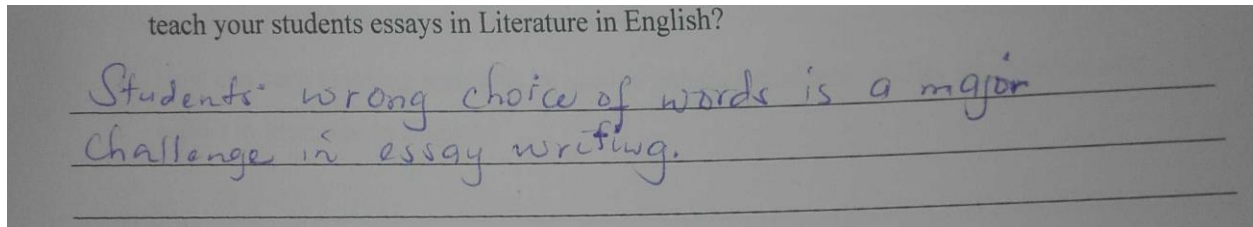 teach your students essays in Literature in English?
Students' wrong choice of words is a major
challenge in essay writing.